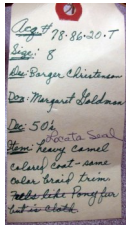 Acq# 78·86·20·T
Size: 8
Des: Borger Christenson
Don: Margaret Goldman
Dec: 50's
Lorata Seal
Item: heavy camel
colored coat - same
color braid trim
Feels like Pony fur
but is cloth